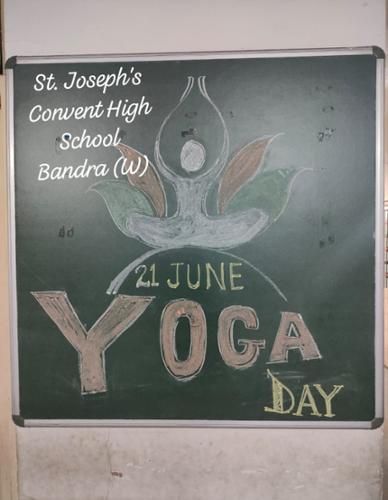 St. Joseph's
Convent High
School
Bandra (W)
21 JUNE
YOGA
DAY